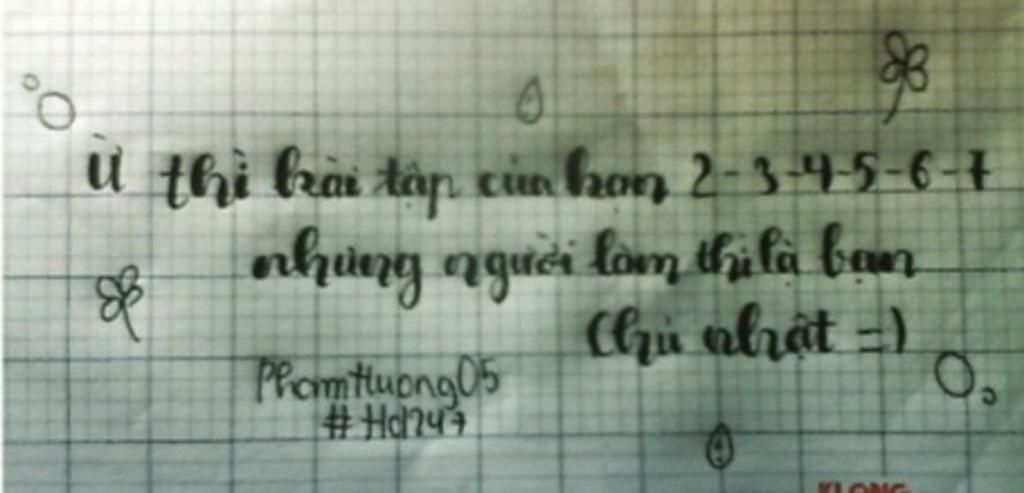 Ừ thì bài tập của bạn 2-3-4-5-6-7
nhưng người làm thì là bạn
Chủ nhật =)
PhamHuong05
#Hd247
KLONG